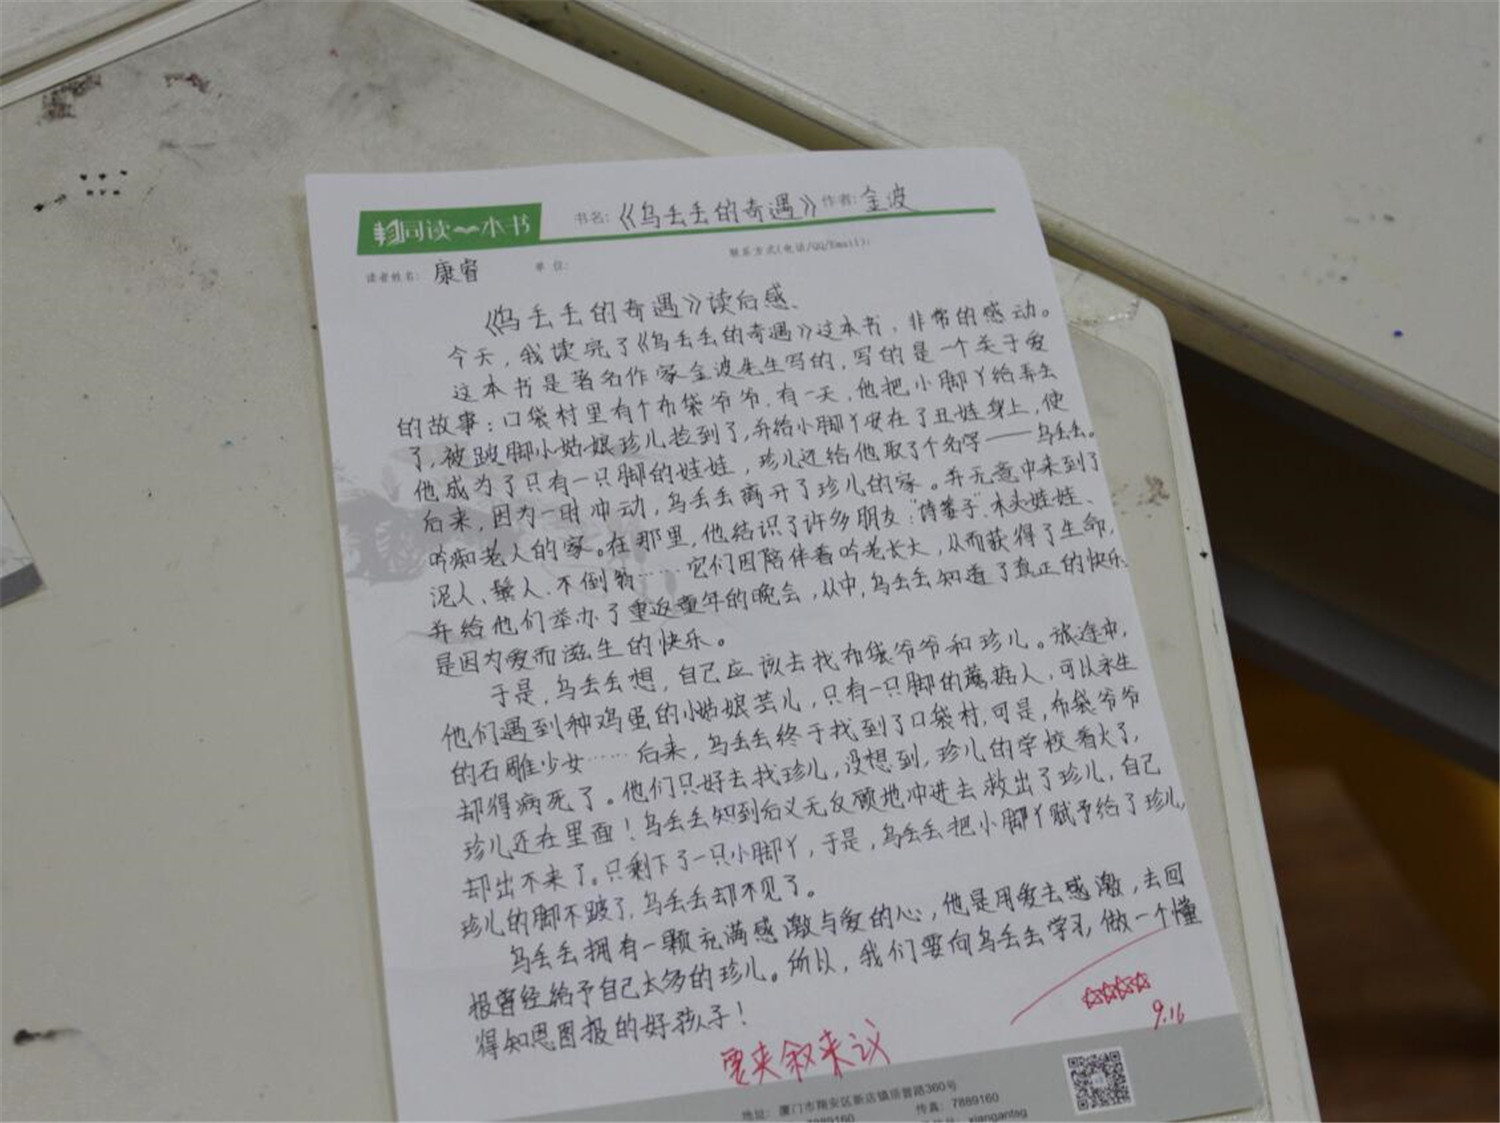 同读一本书 书名:《乌丢丢的奇遇》作者:金波
读者姓名: 康睿 单位: 联系方式(电话/QQ/Email):
《乌丢丢的奇遇》读后感
今天,我读完了《乌丢丢的奇遇》这本书,非常的感动。
这本书是著名作家金波先生写的,写的是一个关于爱
的故事:口袋村里有个布袋爷爷.有一天,他把小脚丫给弄丢
了,被跛脚小姑娘珍儿捡到了,并给小脚丫安在了丑娃身上,使
他成为了只有一只脚的娃娃,珍儿还给他取了个名字——乌丢丢。
后来,因为一时冲动,乌丢丢离开了珍儿的家。并无意中来到了
吟痴老人的家。在那里,他结识了许多朋友:“诗篓子”、木头娃娃、
泥人、鬃人、不倒翁……它们因陪伴着吟老长大,从而获得了生命,
并给他们举办了重返童年的晚会,从中,乌丢丢知道了真正的快乐
是因为爱而滋生的快乐。
于是,乌丢丢想,自己应该去找布袋爷爷和珍儿。旅途中,
他们遇到种鸡蛋的小姑娘芸儿,只有一只脚的蘑菇人,可以永生
的石雕少女……后来,乌丢丢终于找到了口袋村,可是,布袋爷爷
却得病死了。他们只好去找珍儿,没想到,珍儿的学校着火了,
珍儿还在里面!乌丢丢知到后义无反顾地冲进去救出了珍儿,自己
却出不来了。只剩下了一只小脚丫,于是,乌丢丢把小脚丫赋予给了珍儿,
珍儿的脚不跛了,乌丢丢却不见了。
乌丢丢拥有一颗充满感激与爱的心,他是用爱去感激,去回
报曾经给予自己太多的珍儿。所以,我们要向乌丢丢学习,做一个懂
得知恩图报的好孩子!
☆☆☆☆
9.16
要夹叙夹议
地址: 厦门市翔安区新店镇 路360号
7889160 传真: 7889160
xiangantsg